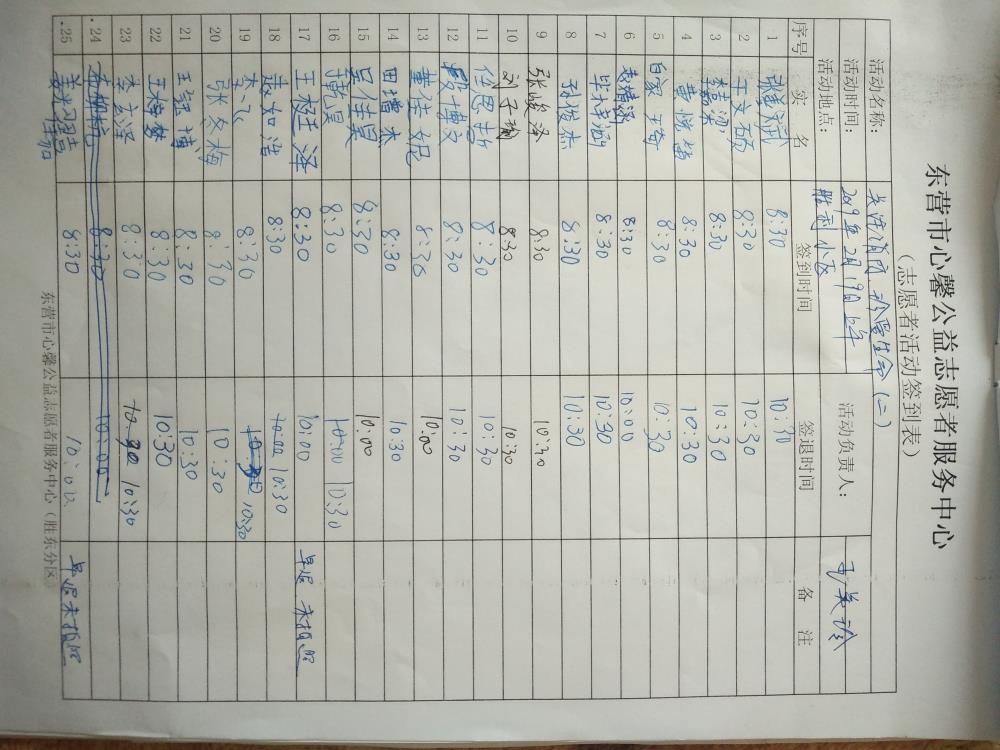 东营市心馨公益志愿者服务中心
（志愿者活动签到表）
活动名称： 关注消防 珍爱生命（二）
活动时间： 2019年2月19日上午 活动负责人：
活动地点： 胜利小区
序号 实 名 签到时间 签退时间 备 注
1 8:30 10:30
2 于文硕 8:30 10:30
3 李嘉梁 8:30 10:30
4 黄悦 8:30 10:30
5 白家琦 8:30 10:30
6 8:30 10:00
7 8:30 10:30
8 孙俊杰 8:30 10:30
9 张峻泽 8:30 10:30
10 刘子瑜 8:30 10:30
11 任思哲 8:30 10:30
12 段博文 8:30 10:30
13 董佳妮 8:30 10:00
14 田增杰 8:30 10:30
15 吴佳昊 8:30 10:00
16 昊 8:30 10:00 10:30
17 王梃泽 8:30 10:00 早退 未拍照
18 赵如浩 8:30 10:00 10:30
19 李飞 8:30 10:30
20 张冬梅 8:30 10:30
21 王钰博 8:30 10:30
22 王梦 8:30 10:30
23 李玄泽 8:30 10:30
24 8:30 10:00
25 8:30 10:00 早退未拍照
东营市心馨公益志愿者服务中心（胜东分区）